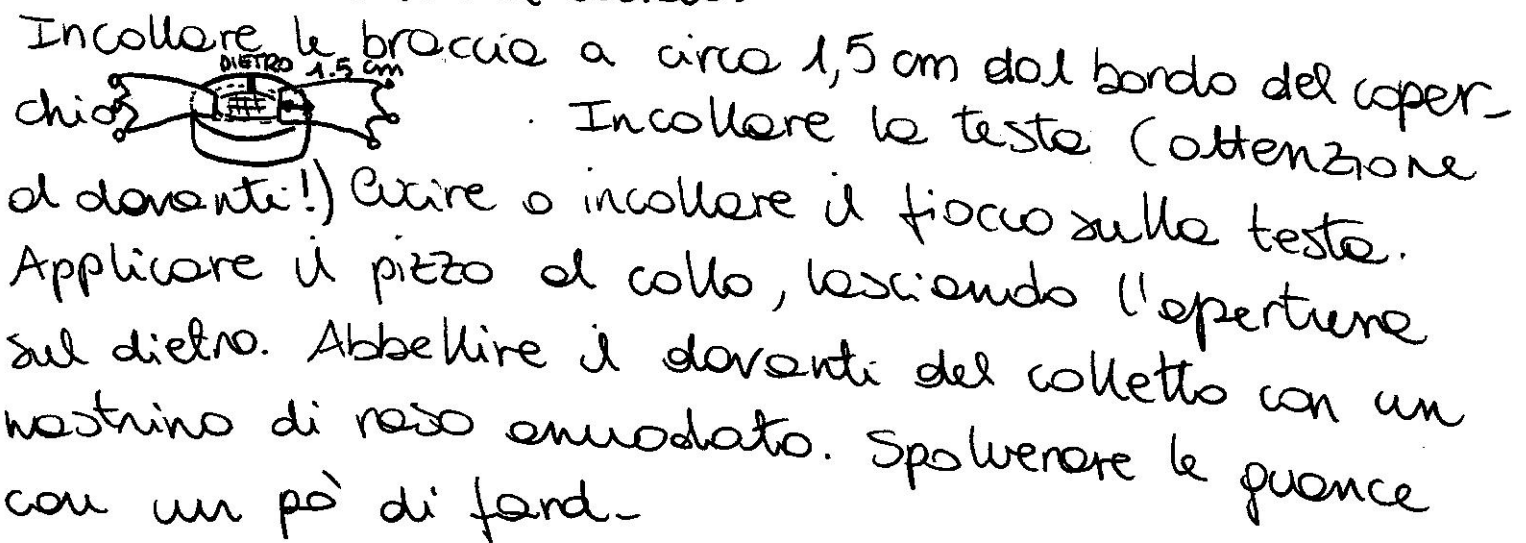 Incollare le braccia a circa 1,5 cm dal bordo del coper-
DIETRO 1.5 cm
chio. Incollare la testa (attenzione
al davanti!) Cucire o incollare il fiocco sulla testa.
Applicare il pizzo al collo, lasciando l'apertura
sul dietro. Abbellire il davanti del colletto con un
nastrino di raso annodato. Spolverare le guance
con un pò di fard-